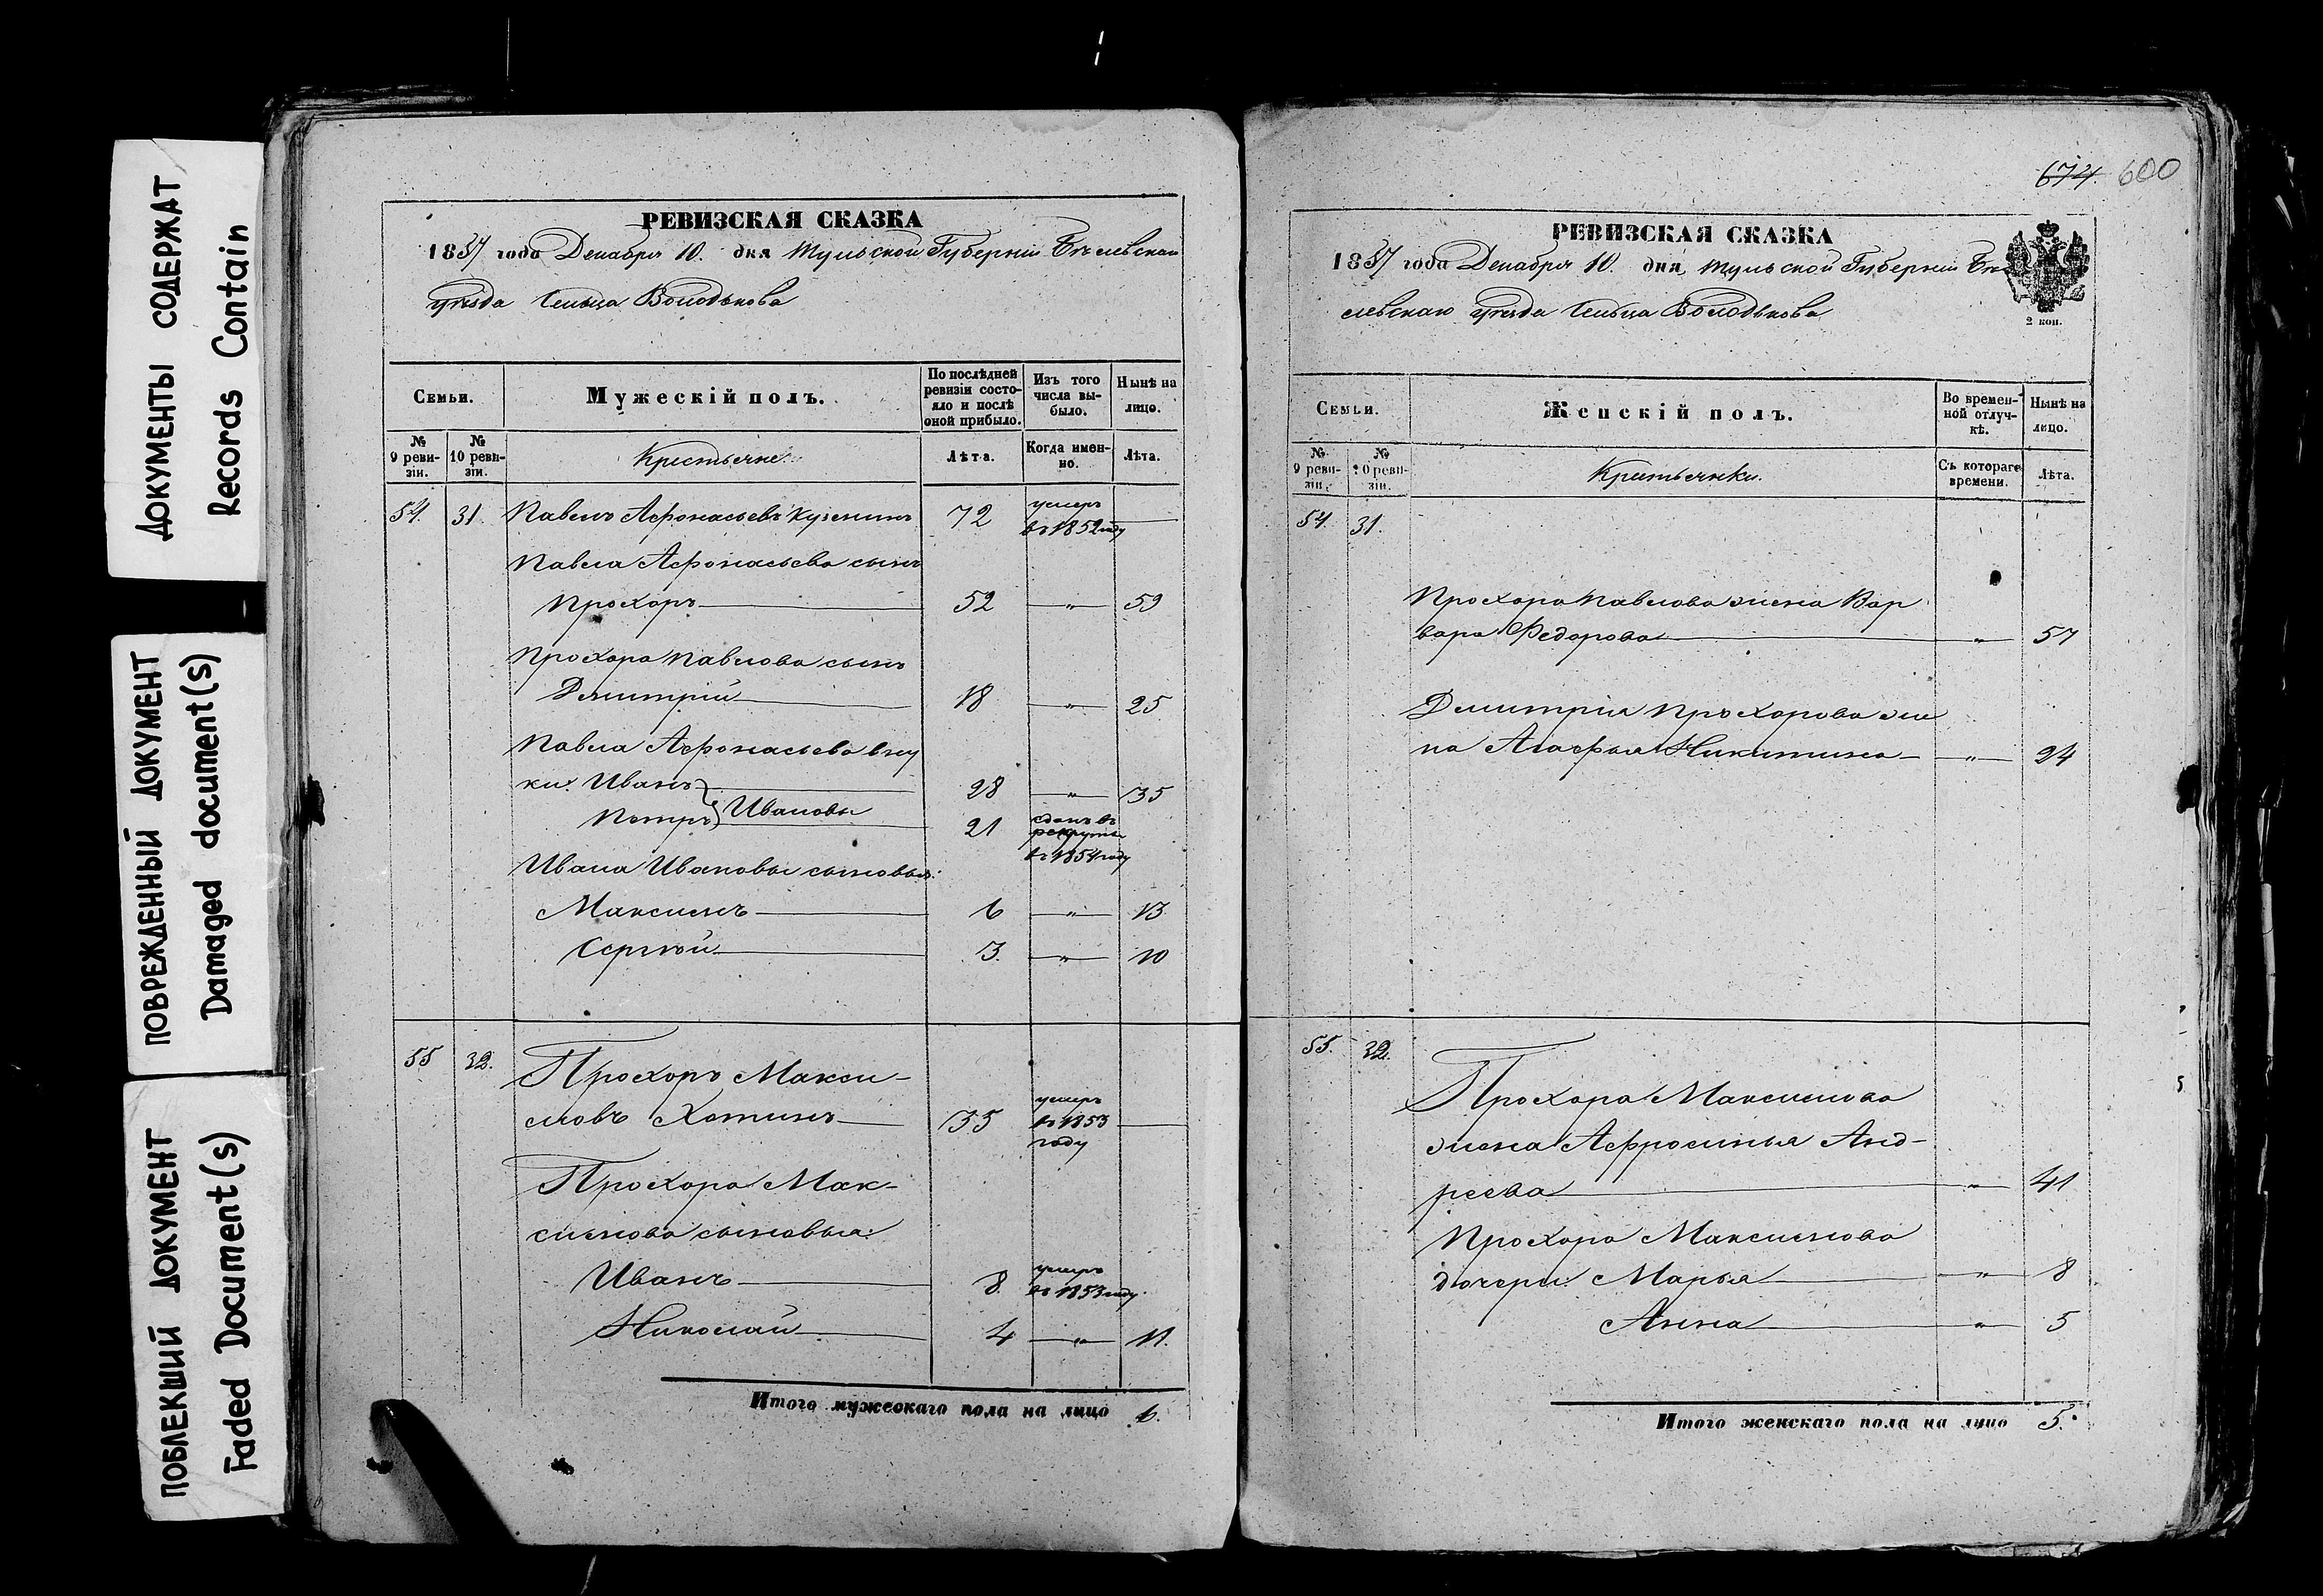 ДОКУМЕНТЫ СОДЕРЖАТ
Records Contain
ПОВРЕЖДЕННЫЙ ДОКУМЕНТ
Damaged document(s)
ПОБЛЕКШИЙ ДОКУМЕНТ
Faded Document(s)
РЕВИЗСКАЯ СКАЗКА
1857 года Декабря 10. дня Тульской Губерніи Бѣлевскаго
уѣзда Сельца Володькова
Семьи.
Мужескій полъ.
По послѣдней ревизіи состояло и послѣ оной прибыло.
Изъ того числа выбыло.
Нынѣ на лицо.
№ 9 ревизіи.
№ 10 ревизіи.
Крестьяне.
Лѣта.
Когда именно.
Лѣта.
54. 31. Павелъ Афонасьевъ Кузминъ 72 умеръ въ 1852 году
Павла Афонасьева сынъ
Прохоръ 52 " 59
Прохора Павлова сынъ
Дмитрій 18 " 25
Павла Афонасьева вну
ки: Иванъ 28 " 35
Петръ } Ивановы 21 сданъ въ рекруты въ 1854 году
Ивана Иванова сыновья:
Максимъ 6 " 13
Сергѣй 3. " 10
55 32. Прохоръ Макси-
мовъ Хотинъ 35 умеръ въ 1853 году
Прохора Мак-
симова сыновья:
Иванъ 8. умеръ въ 1853 году.
Николай 4 " 11.
Итого мужескаго пола на лицо 6.
674. 600
РЕВИЗСКАЯ СКАЗКА
1857 года Декабря 10. дня, Тульской Губерніи Бѣ
левскаго уѣзда Сельца Володькова
2 коп.
Семьи.
Женскій полъ.
Во временной отлучкѣ.
Нынѣ на лицо.
№ 9 ревизіи.
№ 10 ревизіи.
Крестьянки.
Съ котораго времени.
Лѣта.
54. 31.
Прохора Павлова жена Вар
вара Федорова " 57
Дмитрія Прохорова же
на Агафья Никитина " 24
55. 32.
Прохора Максимова
жена Афросинья Анд-
реева " 41
Прохора Максимова
дочери: Марья " 8
Анна " 5
Итого женскаго пола на лицо 5.